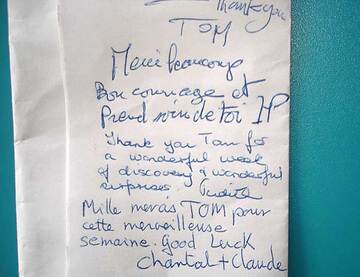 Thank you
TOM
Merci beaucoup
Bon courage et
Prend soin de toi
Thank you Tom for
a wonderful week
of discovery & wonderful
surprises. Judith
Mille mercis TOM pour
cette merveilleuse
semaine. Good Luck
Chantal + Claude